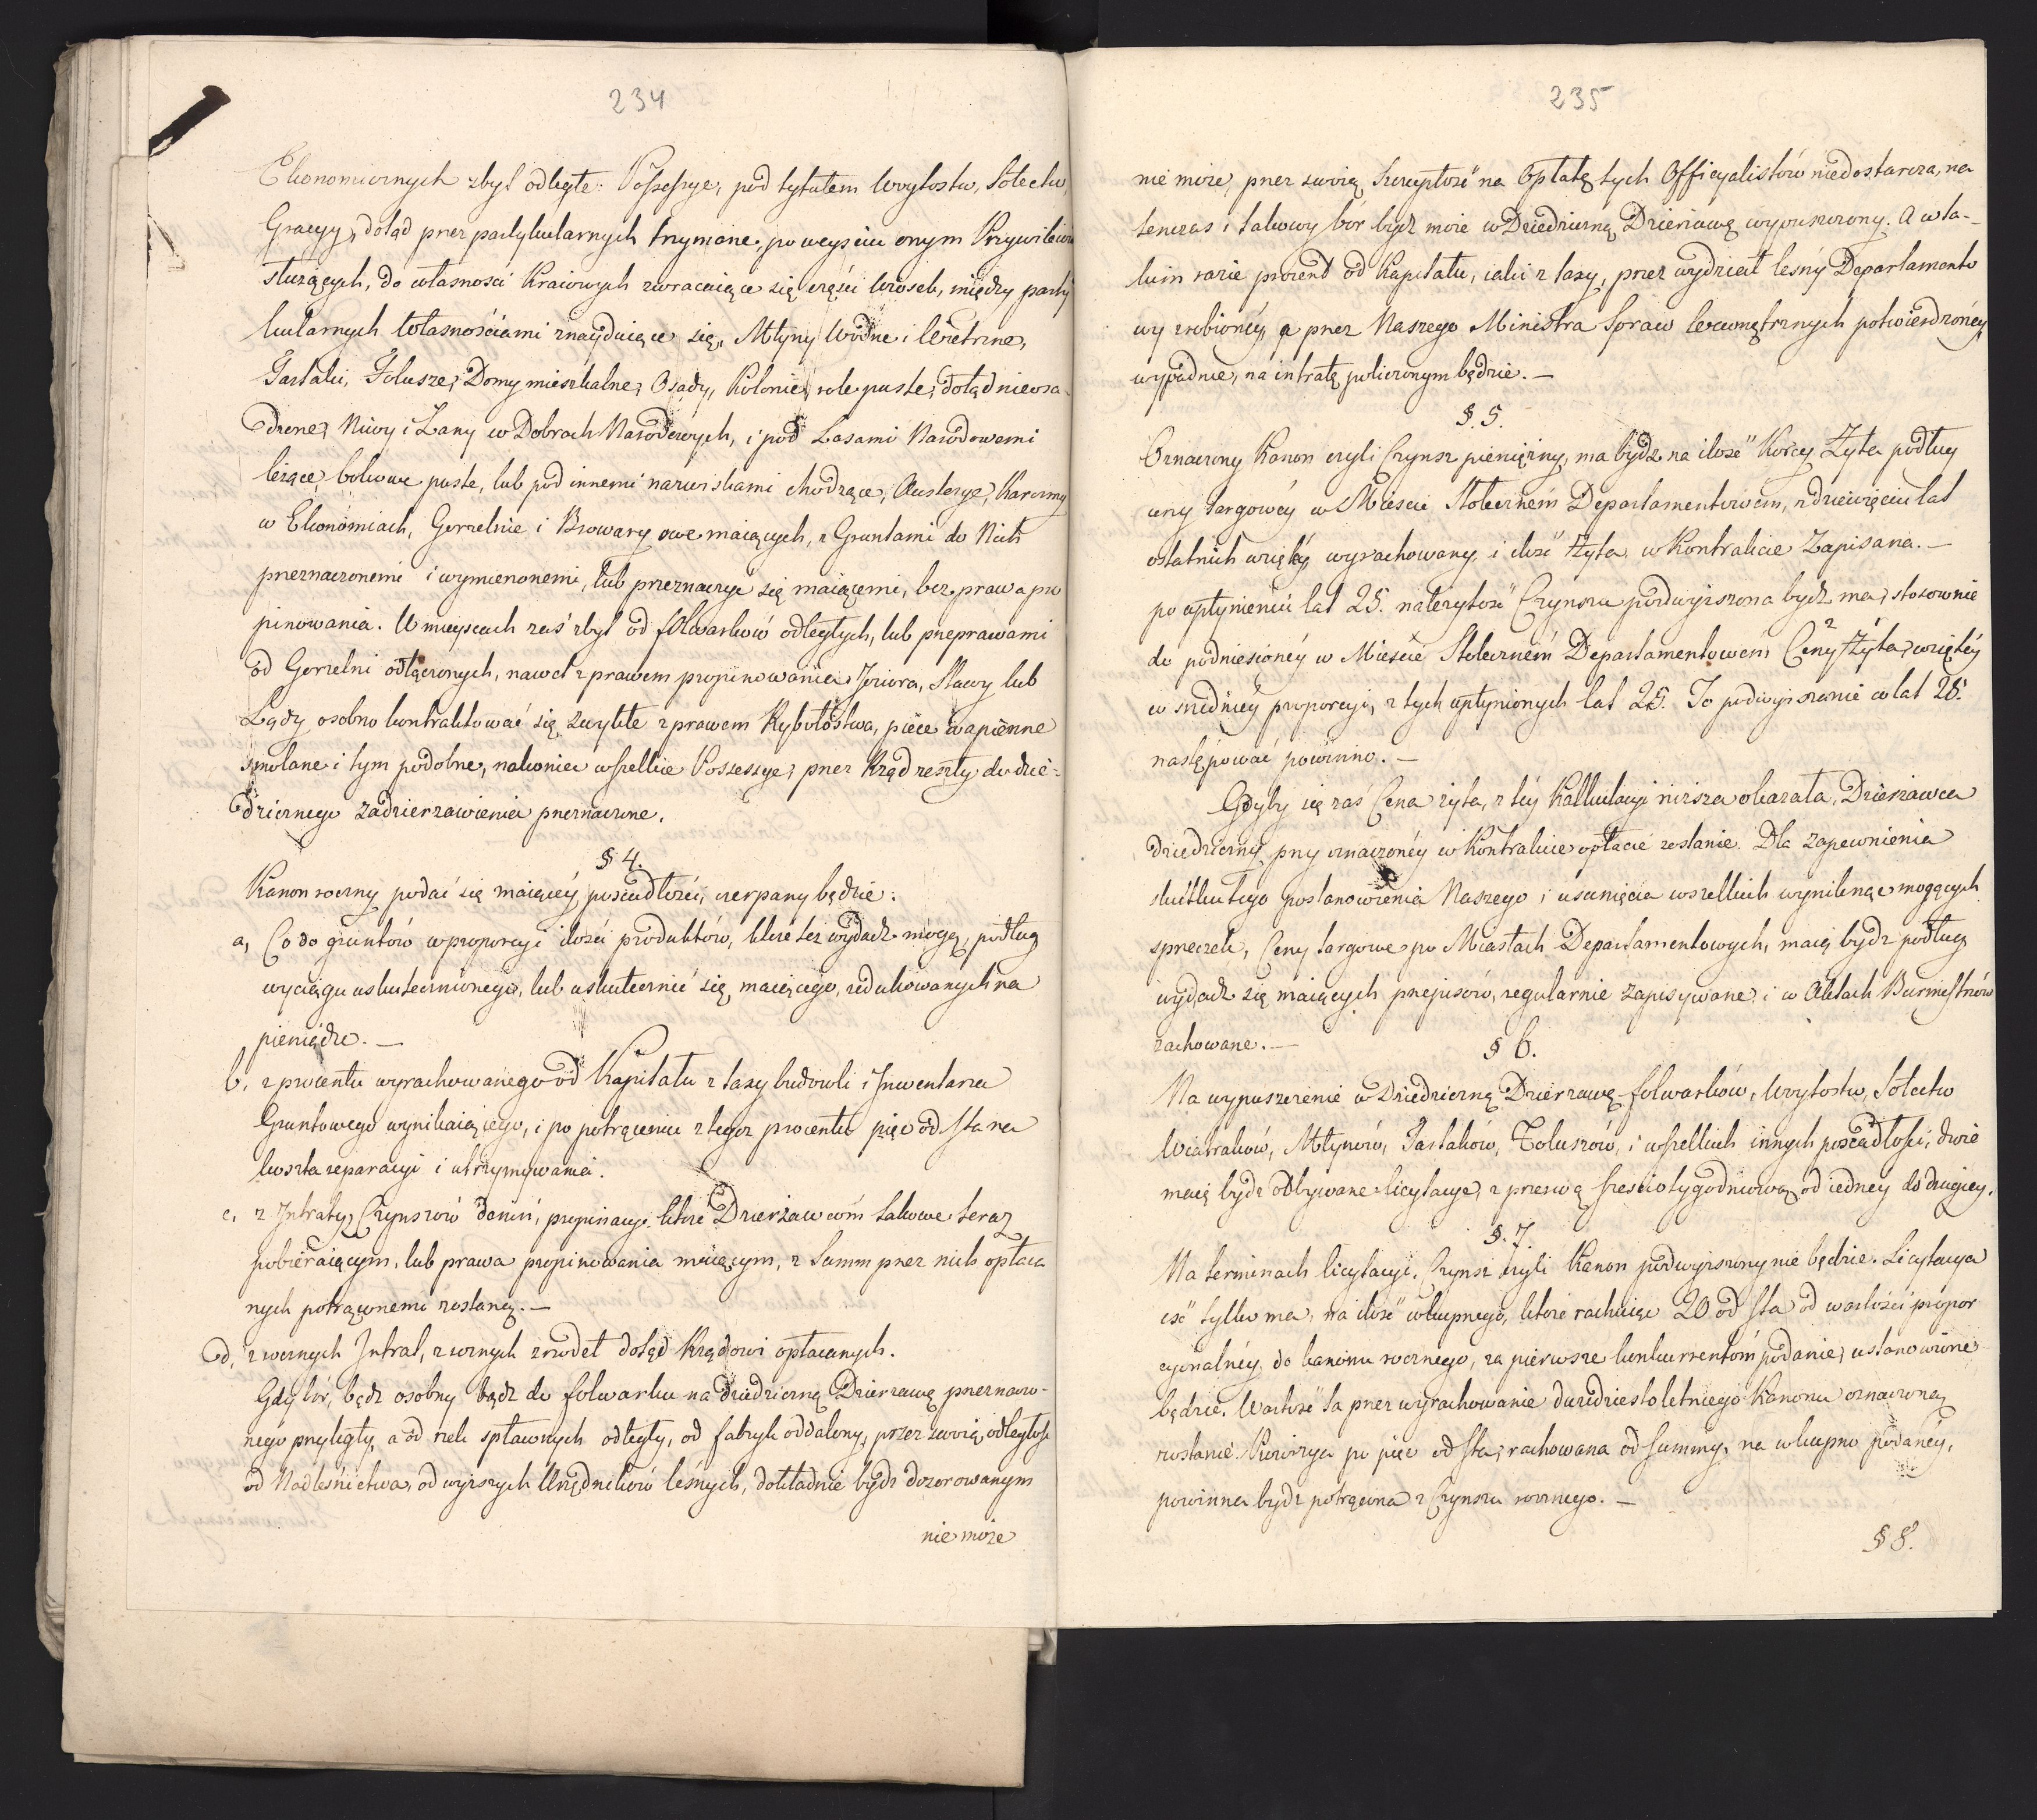 234
Ekonomicznych zbyt odległe. Possessye, pod tytułem Wóytostw, Sołectw,
Gracyy, dotąd przez partykularnych trzymane, po weyściu onym Przywileiów
służących, do własności Kraiowych zwracaiące się części wiosek, między party
kularnych własnościami znayduiące się, Młyny Wodne i Wietrzne,
Tartaki, Folusze, Domy mieszkalne, Osady, Kolonie, role puste, dotąd nieosa-
dzone, Niwy i Łany w Dobrach Narodowych, i pod Lasami Narodowemi
leżące, bokowe puste, lub pod innemi nazwiskami chodzące, Austerye, Karczmy
w Ekonomiach, Gorzelnie i Browary swe maiących, z Gruntami do Nich
przeznaczonemi i wymienonemi, lub przeznaczyć się maiącemi, bez prawa pro
pinowania. W mieyscach zaś zbyt od folwarków odległych, lub przeprawami
od Gorzelni odłączonych, nawet z prawem propinowania Jeziora, Stawy lub
Lądy osobno kontraktować się zwykłe z prawem Rybołóstwa, piece wapienne
smolane i tym podobne, nakoniec wszelkie Possessye, przez Rząd reszty do dzie-
dzicznego zadzierzawienia przeznaczone.
§ 4.
Kanon roczny podać się maiącéy posiadłości, czerpany będzie:
a, Co do gruntów w proporcyi ilości produktów, które też wydadź mogą, podług
wyciągu uskutecznionego, lub uskutecznić się maiącego, redukowanych na
pieniądze. —
b. z procentu wyrachowanego od Kapitału z taxy budowli i Inwentarza
Gruntowego wynikaiącego, i po potrąceniu z tegoż procentu pięć od sta na
koszta reparacyi i utrzymywania.
c, z Intraty, Czynszów danin, propinacyi, które Dzierżawcóm takowe teraz
pobieraiącym, lub prawa propinowania maiącym, z Summ przez nich opłaca
nych potrąconemi zostaną. —
d, z wecznych Intrat, z rożnych zrodeł dotąd Rządowi opłacanych.
Gdy bór, bądź osobny bądź do folwarku na dziedziczną Dzierzawę przeznaczo-
nego przyległy, a od rzek spławnych odległy, od fabryk oddalony, przez swoią odległość
od Nadleśnictwa, od wyższych Urzędników leśnych, dokładnie bydź dozorowanym
nie może
235
nie może, przez swoią szczupłość na Opłatę tych Officyalistów niedostarcza, na
tenczas i takowy bór bydź może w Dziedziczną Dzierżawę wypuszczony. A w ta-
kiim razie procent od Kapitału, iaki z taxy, przez wydział leśny Departamento
wy zrobionéy, a przez Naszego Ministra Spraw Wewnętrznych potwierdzonéy,
wypadnie, na intratę policzonym będzie. —
§. 5.
Oznaczony Kanon czyli Czynsz pieniężny, ma bydź na ilość Korcy Żyta podług
ceny targowéy w Mieście Stołecznem Departamentowém, z dziewięciu lat
ostatnich wziętéy wyrachowany, i ilość Żyta, w Kontrakcie Zapisana. —
po upłynieniu lat 25. należytość Czynszu podwyższona bydź ma, stosownie
do podniesionéy w Mieście Stołeczném Departamentowém Ceny Żyta, wziętéy
w średniéy proporcyi, z tych upłynionych lat 25. To podwyższenie co lat 25.
następować powinno. —
Gdyby się zaś Cena żyta, z téy Kalkulacyi niższa okazała, Dzierżawca
dziedziczny przy oznaczonéy w Kontrakcie opłacie zostanie. Dla zapewnienia
skutku tego postanowienia Naszego i usunięcia wszelkich wyniknąć mogących
sprzeczek, Ceny targowe po Miastach Departamentowych, maią bydź podług
wydadź się maiących przepisów, regularnie zapisywane, i w Aktach Burmistrzów
zachowane. —
§ 6.
Na wypuszczenie w Dziedziczną Dzierzawę folwarków, Wóytostw, Sołectw
Wiatraków, Młynów, Tartaków, Foluszów, i wszelkich innych posiadłości, dwie
maią bydź odbywane licytacye, z przerwą sześciotygodniową od iedney do drugiey.
§. 7.
Na terminach licytacyi, Czynsz czyli Kanon podwyższony nie będzie. Licytacya
iść tylko ma, na ilość wkupnego, które rachuiąc 20. od sta od wartości propor
cyonalnéy, do kanonu rocznego, za pierwsze konkurrentóm podanie, ustanowione
będzie. Wartość ta przez wyrachowanie dwódziestoletniego Kanonu oznaczoną
zostanie. Prowizya po pięć od sta, rachowana od summy, na wkupno podanéy,
powinna bydź potrącona z Czynszu rocznego. —
§ 8.